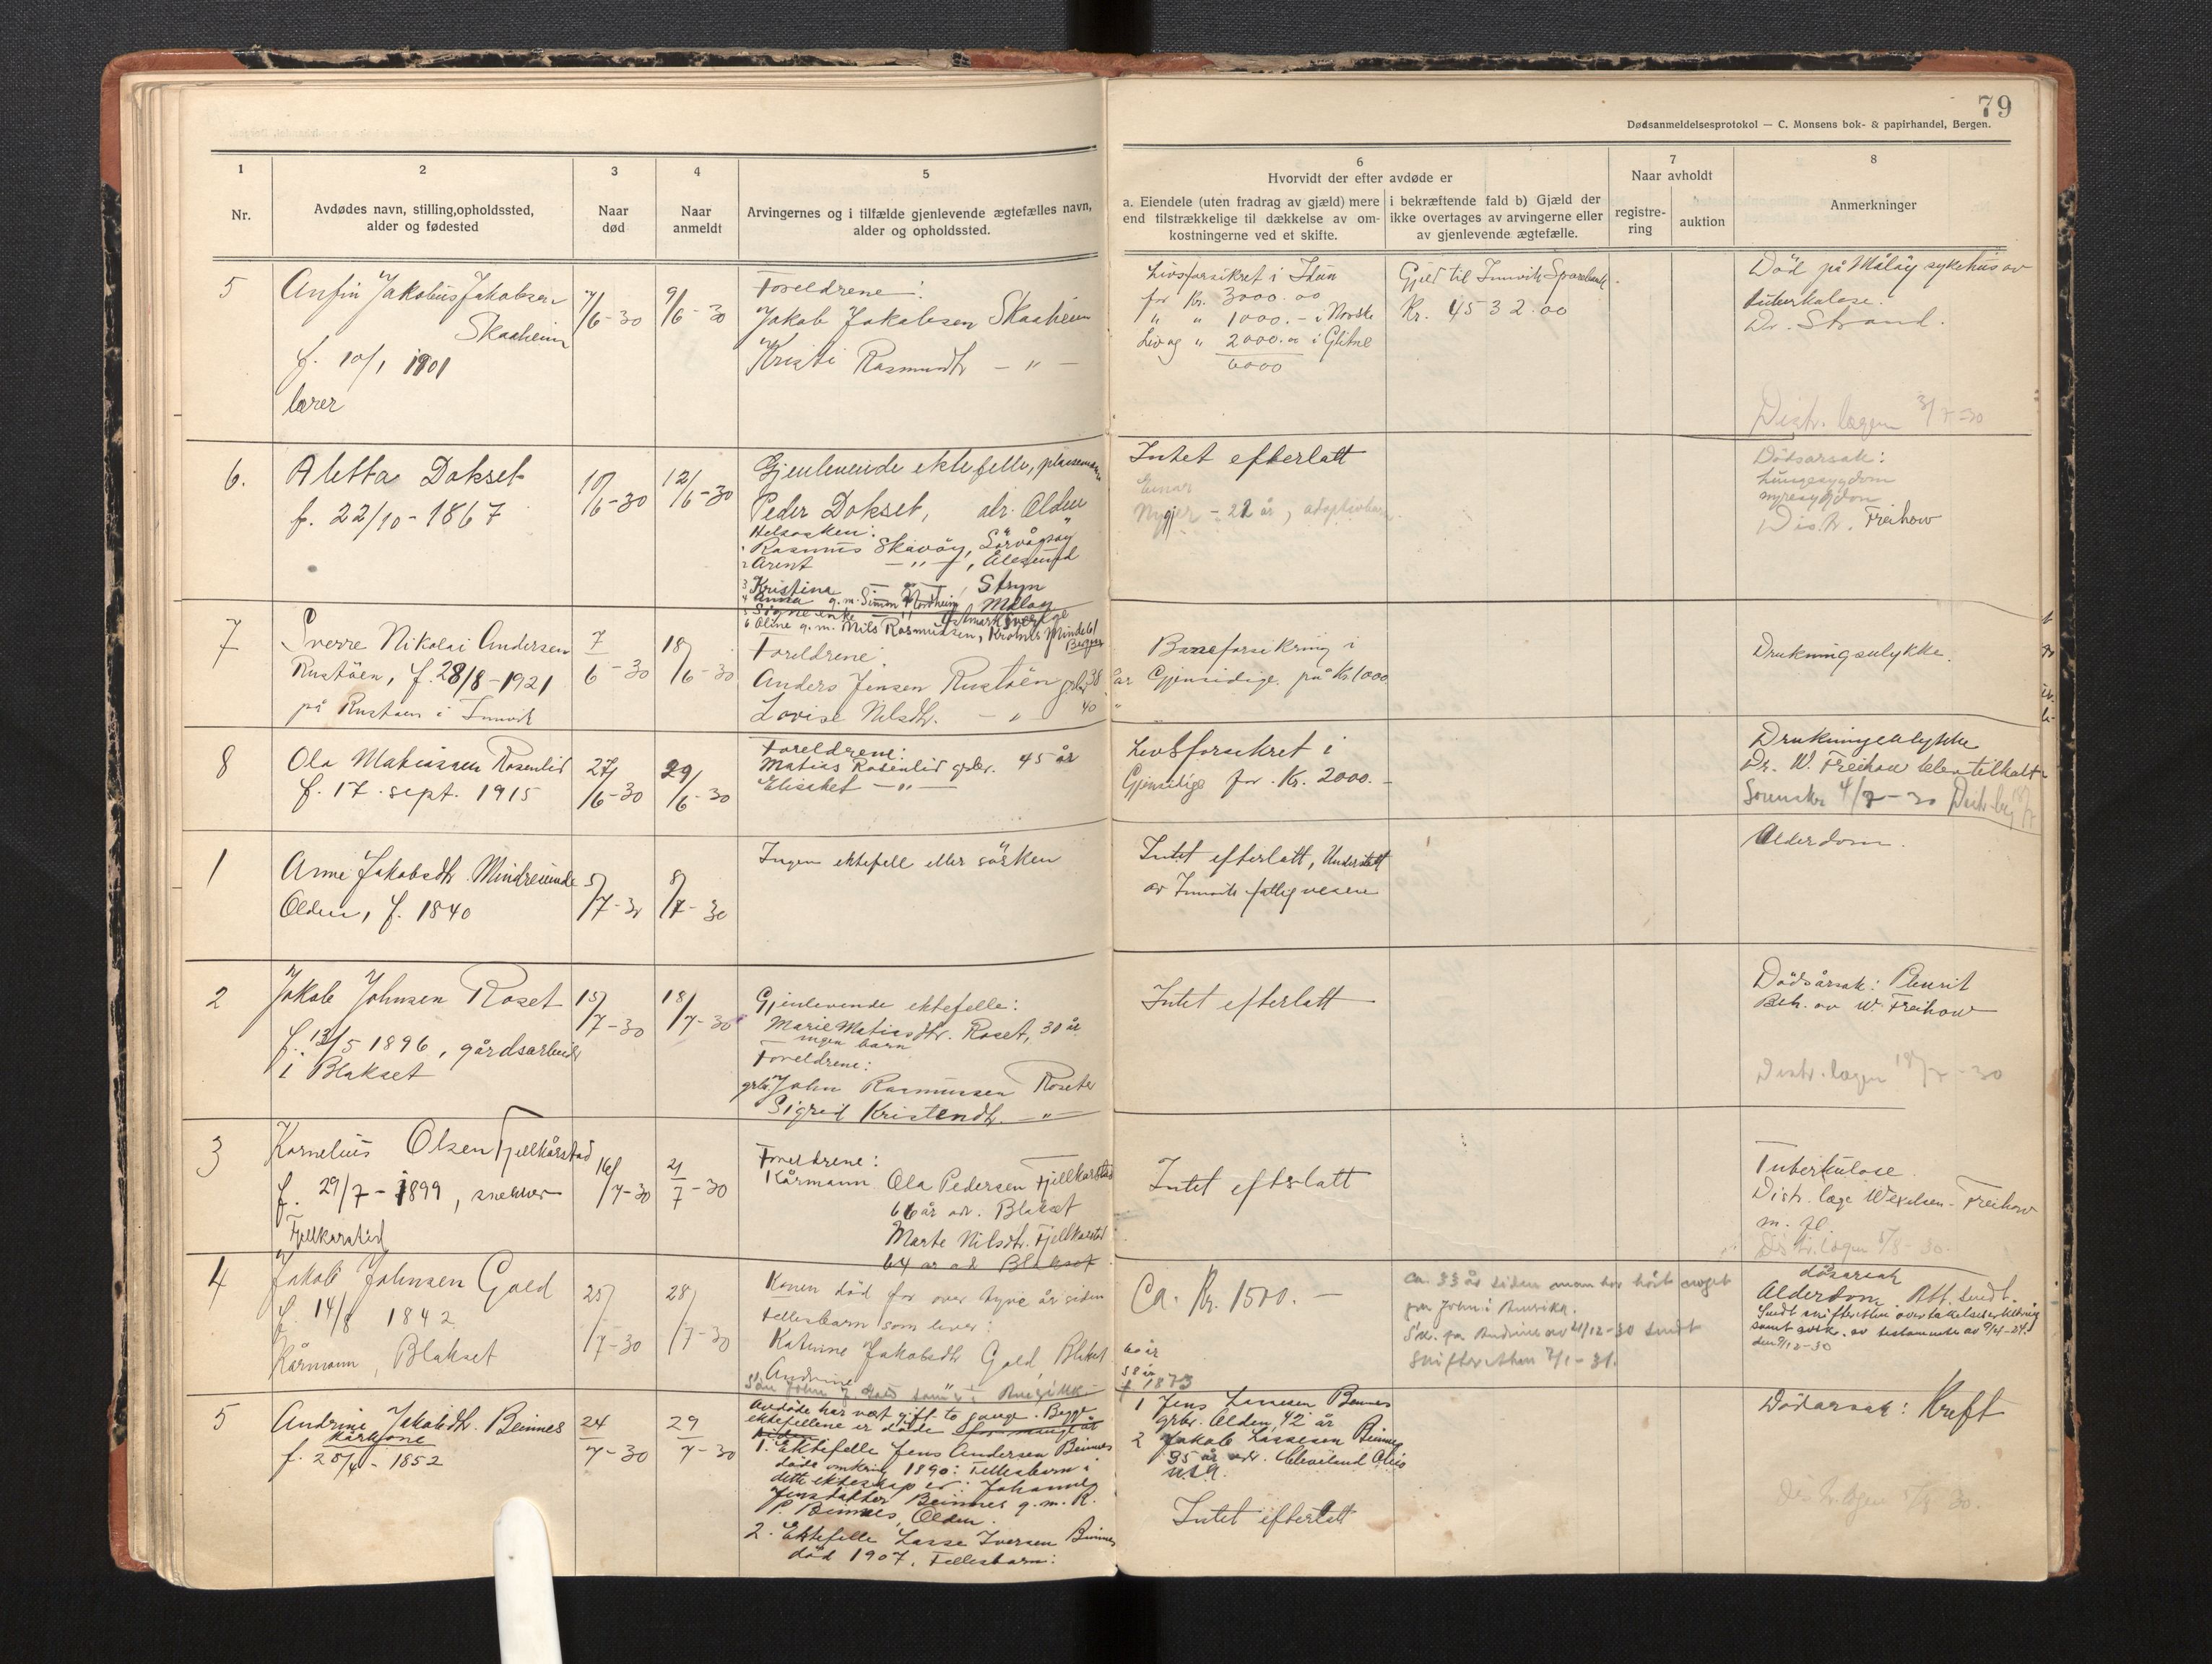 79
Dødsanmeldelsesprotokol — C. Monsens bok- & papirhandel, Bergen.
1
Nr.
2
Avdødes navn, stilling, opholdssted,
alder og fødested
3
Naar
død
4
Naar
anmeldt
5
Arvingernes og i tilfælde gjenlevende ægtefælles navn,
alder og opholdssted.
6
Hvorvidt der efter avdøde er
a. Eiendele (uten fradrag av gjæld) mere
end tilstrækkelige til dækkelse av om-
kostningerne ved et skifte.
i bekræftende fald b) Gjæld der
ikke overtages av arvingerne eller
av gjenlevende ægtefælle.
7
Naar avholdt
registre-
ring
auktion
8
Anmerkninger
5
Anfin Jakobus Jakobsen
Skaaheim
f. 10/1 1901
lærer
7/6-30
9/6-30
Foreldrene:
Jakob Jakobsen Skaaheim
Kristi Rasmusdtr — " —
Livsforsikret i Idun
for Kr. 3000.00
" " 1000.- i Norske
Liv og " 2000.00 i Glitne
6000
Gjeld til Innvik Sparebank
Kr. 4532.00
Död på Måløy sykehus av
tuberkulose.
Dr. Strand.
Distr. lægen 3/7-30
6.
Aletta Dokset
f. 22/10-1867
10/6-30
12/6-30
Gjenlevende ektefelle, plassmann
Peder Dokset, adr. Olden
Helsösken:
1 Rasmus Skavöy, Sörvågsöy
2 Arent —"—, Ålesund
3 Kristine Stryn
4 Anna g.m. Simon Nordheim, Måløy
5 Signe enke
6 Oline g.m. Nils Rasmussen, Minde 61
Bergen
Intet efterlatt
Einar
22 år, adoptivbarn
Dödsårsak:
Lungesygdom
nyresygdom
Distr. Freihow
7
Sverre Nikolai Andersen
Rustöen, f. 28/8-1921
på Rustöen i Innvik
7/6-30
18/6-30
Foreldrene:
Anders Jensen Rustöen gbr 38 år
Lovise Nilsdtr. — " — 40 "
Barneforsikring i
Gjensidige på Kr 1000
Drukningsulykke.
8
Ola Matiassen Rosenlid
f. 17. sept. 1915
27/6-30
29/6-30
Foreldrene:
Matias Rosenlid gbr. 45 år
Elisabet —"—
Livsforsikret i
Gjensidige for Kr. 2000.-
Drukningsulykke
Dr. W. Freihow blev tilkalt
Sorenskr 4/7-30
1
Anne Jakobsdtr. Mindresunde
Olden, f. 1840
5/7-30
8/7-30
Ingen ektefell eller sösken
Intet efterlatt, Understött
av Innvik fattigvesen
Alderdom.
2
Jakob Johnsen Roset
f. 13/5 1896, gårdsarbeider
i Blakset
15/7-30
18/7-30
Gjenlevende ektefelle:
Marie Matiasdtr. Roset, 30 år
ingen barn
Foreldrene:
grbr. John Rasmussen Roset
Sigrid Kristendtr. —"—
Intet efterlatt
Dödsårsak: Plevrit
Beh. av W. Freihow
Distr. lægen 18/7-30
3
Kornelius Olsen Fjellkårstad
f. 29/7-1899, snekker
Fjellkårstad
16/7-30
21/7-30
Foreldrene:
Kårmann Ola Pedersen Fjellkårstad
66 år adr. Blakset
Marte Nilsdtr. Fjellkårstad
64 år adr. Blakset
Intet efterlatt
Tuberkulose.
Distr. læge Wexelsen - Freihow
m. fl.
Distr. lægen 5/8-30.
4
Jakob Johnsen Gald
f. 14/8 1842
Kårmann, Blakset
25/7-30
28/7-30
Konen död for over tyve år siden
Fellesbarn som lever:
Katrine Jakobsdtr Gald, Blakset 60 år
Andrine 58 år
Sön John J. Gald i Amerika f 1873
Ca. Kr. 1500.—
Ca. 33 år siden man har hört noget
fra John i Amerika.
Sk. fra Andrine av 21/12-30 sendt
Skifteretten 7/1-31.
dösårsak
Alderdom Att. sendt.
Sendt skifteretten overtakelseserklæring
samt avsk. av testamente av 9/4-24.
5
Andrine Jakobsdtr. Beinnes
Kårkone
f. 25/4-1852
24/7-30
29/7-30
Avdöde har vært gift to gange. Begge
ektefellene er döde for mange år
siden
1. Ektefelle Jens Andersen Beinnes
döde omkring 1890: Fellesbarn i
dette ekteskap er: Johanne
Jensdatter Beinnes g.m. R.
P. Beinnes, Olden.
2. Ektefelle Lasse Iversen Beinnes
död 1907. Fellesbarn:
1 Jens Lassesen Beinnes
grbr. Olden, 42 år
2 Jakob Lassesen Beinnes
35 år adr. Cleveland Ohio
USA.
Intet efterlatt
Dödsårsak: Kreft
Distr. lægen 5/8 30.